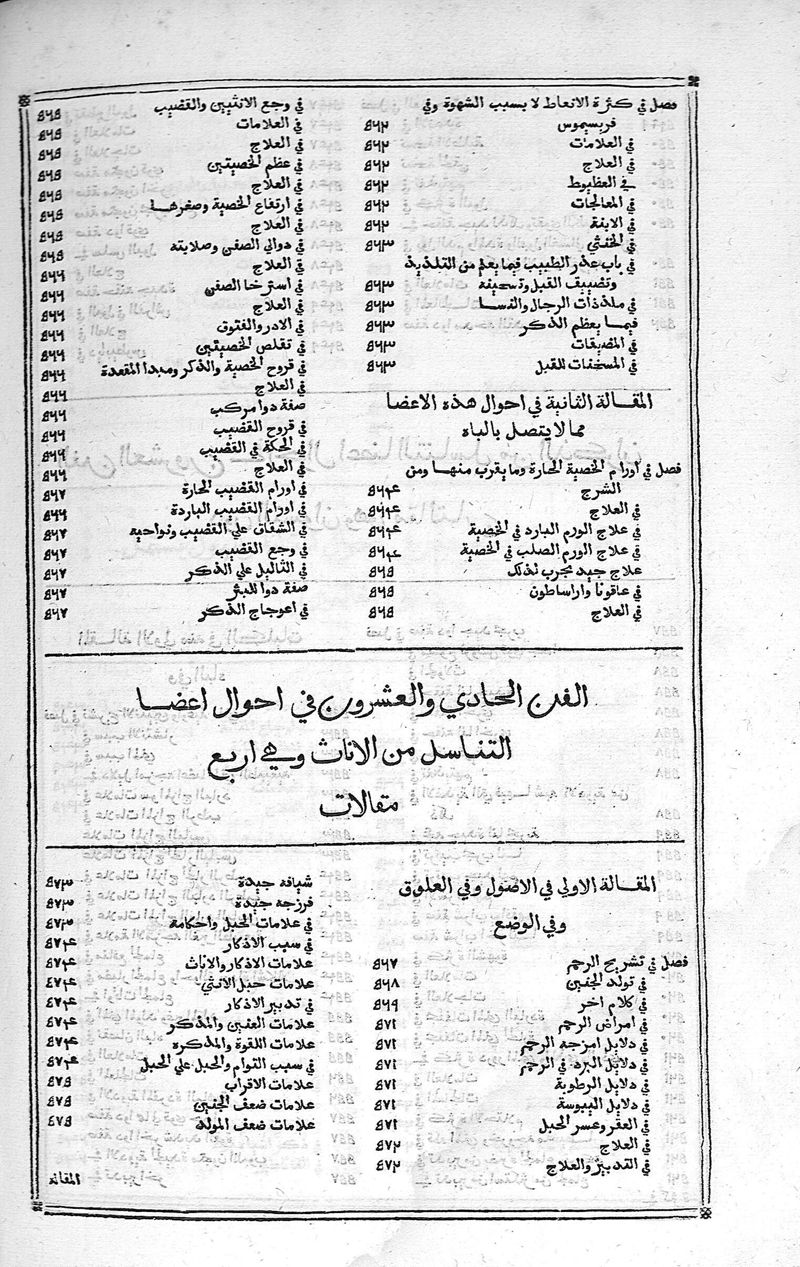 فصل في كثرة الانعاظ لا بسبب الشهوة وفي
فريسيموس ٥٦٢
في العلامات ٥٦٢
في العلاج ٥٦٢
في العظيوط ٥٦٢
في المعالجات ٥٦٢
في الابنة ٥٦٢
في الخنثي ٥٦٣
في باب عذر الطبيب فيما يعلم من التلذيذ
وتضييف القبل وتسخينه ٥٦٣
في ملذذات الرجال والنسا ٥٦٣
فيما يعظم الذكر ٥٦٣
في المضيقات ٥٦٣
في المسخنات للقبل ٥٦٣
المقالة الثانية في احوال هذه الاعضا
مما لا يتصل بالباه
فصل في اورام الخصية الحارة وما يقرب منها ومن
الشرج ٥٦٤
في العلاج ٥٦٤
في علاج الورم البارد في الخصية ٥٦٤
في علاج الورم الصلب في الخصية ٥٦٤
علاج جيد يجرب لذلك ٥٦٥
في عاقونا واراساطون ٥٦٥
في العلاج ٥٦٥
في وجع الانثيين والقضيب ٥٦٥
في العلامات ٥٦٥
في العلاج ٥٦٥
في عظم الخصيتين ٥٦٥
في العلاج ٥٦٥
في ارتفاع الخصية وصغرها ٥٦٥
في العلاج ٥٦٥
في دوالي الصفن وصلابته ٥٦٥
في العلاج ٥٦٦
في استرخا الصفن ٥٦٦
في العلاج ٥٦٦
في الادر والفتوق ٥٦٦
في تقلص الخصيتين ٥٦٦
في قروح الخصية والذكر ومبدا المقعدة ٥٦٦
في العلاج ٥٦٦
صفة دوا مركب ٥٦٦
في قروح القضيب ٥٦٦
في الحكة في القضيب ٥٦٦
في العلاج ٥٦٦
في اورام القضيب الحارة ٥٦٧
في اورام القضيب الباردة ٥٦٦
في الشقاق علي القضيب ونواحيه ٥٦٧
في وجع القضيب ٥٦٧
في الثاليل علي الذكر ٥٦٧
صفة دوا للبثر ٥٦٧
في اعوجاج الذكر ٥٦٧
الفن الحادي والعشرون في احوال اعضا
التناسل من الاناث وهي اربع
مقالات
المقالة الاولي في الاصول وفي العلوق
وفي الوضع
فصل في تشريح الرحم ٥٦٧
في تولد الجنين ٥٦٨
في كلام اخر ٥٦٩
في امراض الرحم ٥٧١
في دلايل امزجه الرحم ٥٧١
في دلايل البرد في الرحم ٥٧١
في دلايل الرطوبة ٥٧١
في دلايل اليبوسة ٥٧١
في العقر وعسر الحبل ٥٧١
في العلاج ٥٧٢
في التدبير والعلاج ٥٧٢
شيافه جيدة ٥٧٣
فرزجه جيدة ٥٧٣
في علامات الحبل واحكامة ٥٧٣
في سبب الاذكار ٥٧٤
علامات الاذكار والاناث ٥٧٤
علامات حبل الانثي ٥٧٤
في تدبير الاذكار ٥٧٤
علامات العنين والمذكر ٥٧٤
علامات اللقوة والمذكره ٥٧٤
في سبب التوام والحبل علي الحبل ٥٧٤
علامات الاقراب ٥٧٥
علامات ضعف الجنين ٥٧٥
علامات ضعف المولد ٥٧٥
المقالة